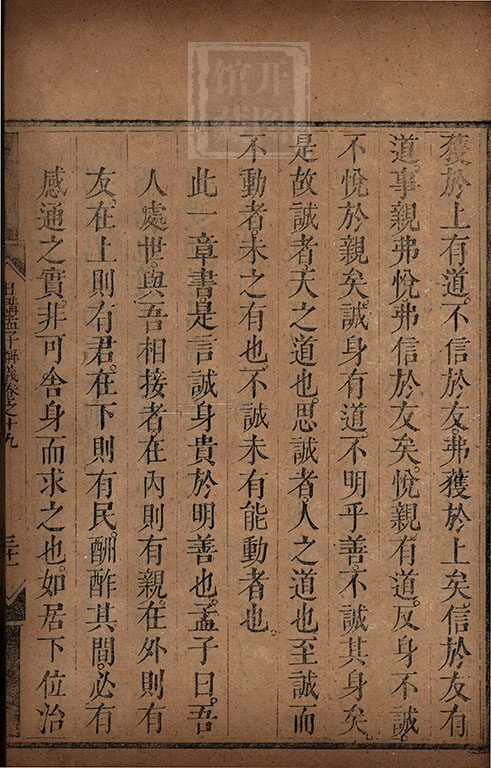 獲於上有道。不信於友。弗獲於上矣。信於友有
道。事親弗悅。弗信於友矣。悅親有道。反身不誠。
不悅於親矣。誠身有道。不明乎善。不誠其身矣。
是故誠者。天之道也。思誠者。人之道也。至誠而
不動者。未之有也。不誠未有能動者也。
此一章書。是言誠身貴於明善也。孟子曰。吾
人處世。與吾相接者。在內則有親。在外則有
友。在上則有君。在下則有民。酬酢其間。必有
感通之實。非可舍身而求之也。如居下位治
日講孟子解義卷之十九
三十一